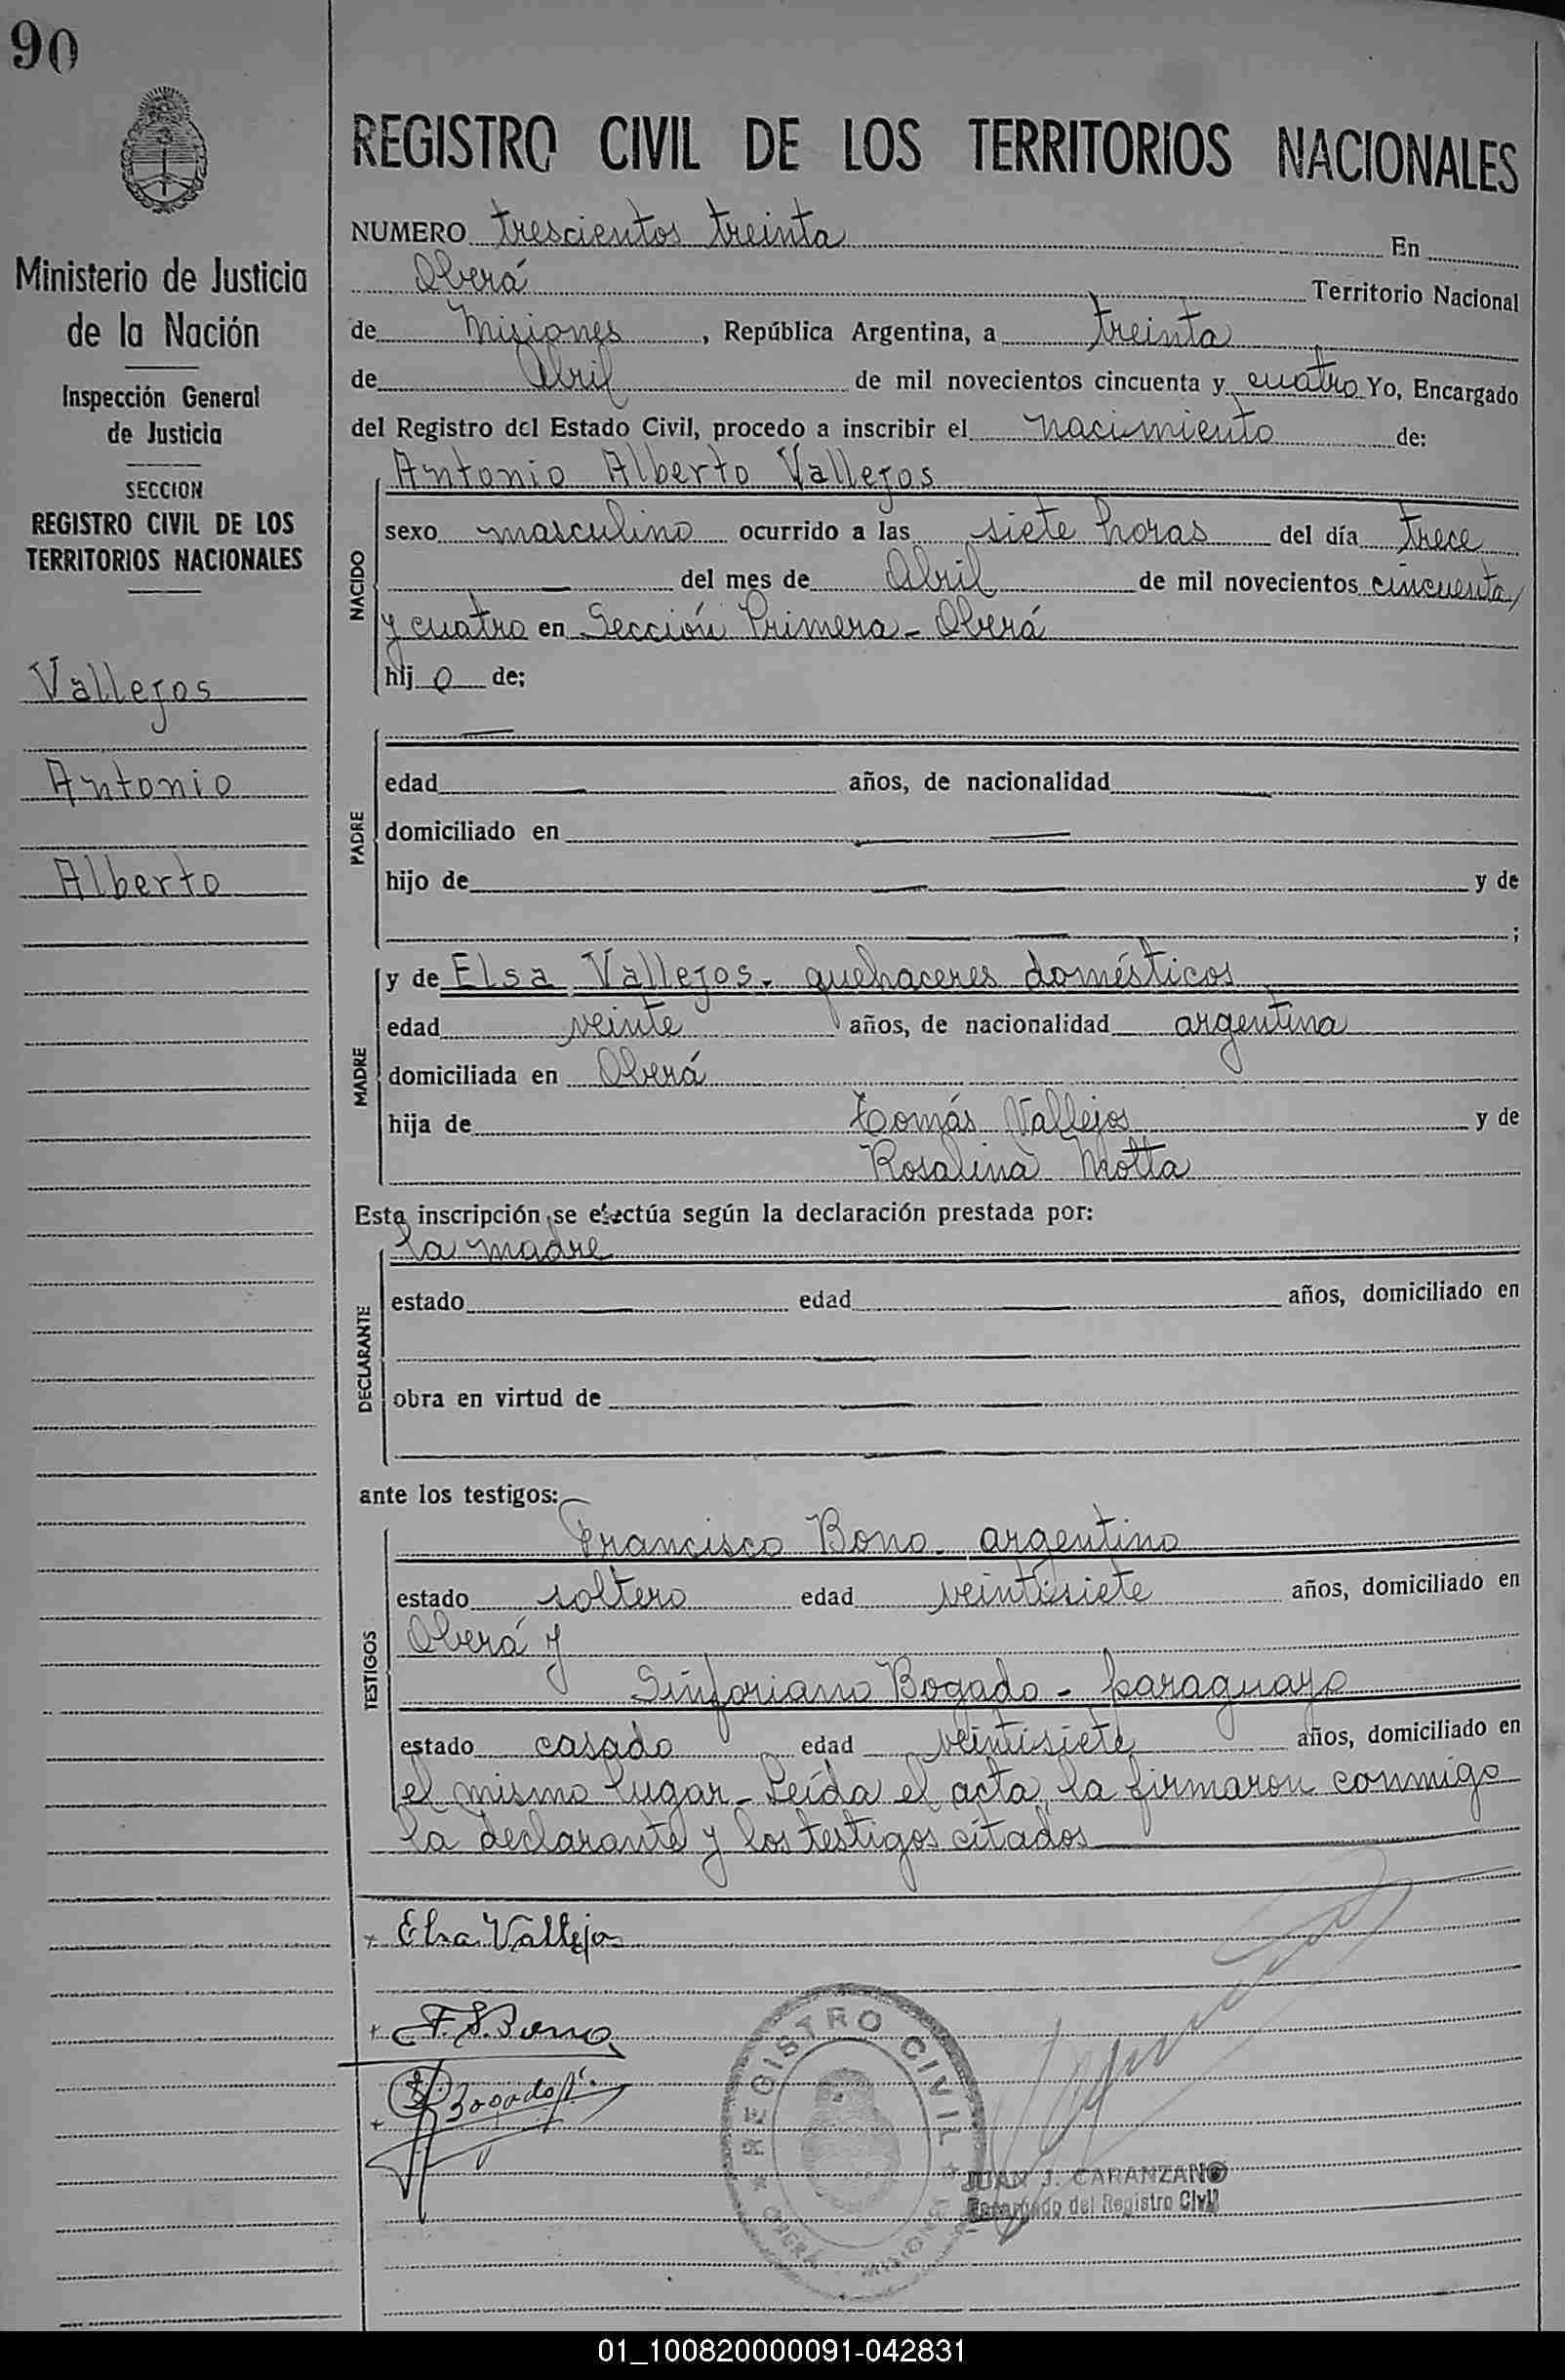 90
Ministerio de Justicia
de la Nación
Inspección General
de Justicia
SECCION
REGISTRO CIVIL DE LOS
TERRITORIOS NACIONALES
Vallejos
Antonio
Alberto
REGISTRO CIVIL DE LOS TERRITORIOS NACIONALES
NUMERO trescientos treinta En
Oberá Territorio Nacional
de Misiones, República Argentina, a treinta
de Abril de mil novecientos cincuenta y cuatro Yo, Encargado
del Registro del Estado Civil, procedo a inscribir el nacimiento de:
NACIDO
Antonio Alberto Vallejos
sexo masculino ocurrido a las siete horas del día trece
del mes de Abril de mil novecientos cincuenta
y cuatro en Sección Primera - Oberá
hij o de;
PADRE
edad años, de nacionalidad
domiciliado en
hijo de y de
;
MADRE
y de Elsa Vallejos. quehaceres domésticos
edad veinte años, de nacionalidad argentina
domiciliada en Oberá
hija de Tomás Vallejos y de
Rosalina Motta
Esta inscripción se efectúa según la declaración prestada por:
DECLARANTE
la madre
estado edad años, domiciliado en
obra en virtud de
ante los testigos:
TESTIGOS
Francisco Bono. argentino
estado soltero edad veintisiete años, domiciliado en
Oberá y
Sinforiano Bogado - paraguayo
estado casado edad veintisiete años, domiciliado en
el mismo lugar - Leída el acta, la firmaron conmigo
la declarante y los testigos citados
+ Elsa Vallejos
+ F. S. Bono
+ S. Bogado
REGISTRO CIVIL
OBERA MISIONES
JUAN J. CARANZANO
Encargado del Registro Civil
01_100820000091-042831